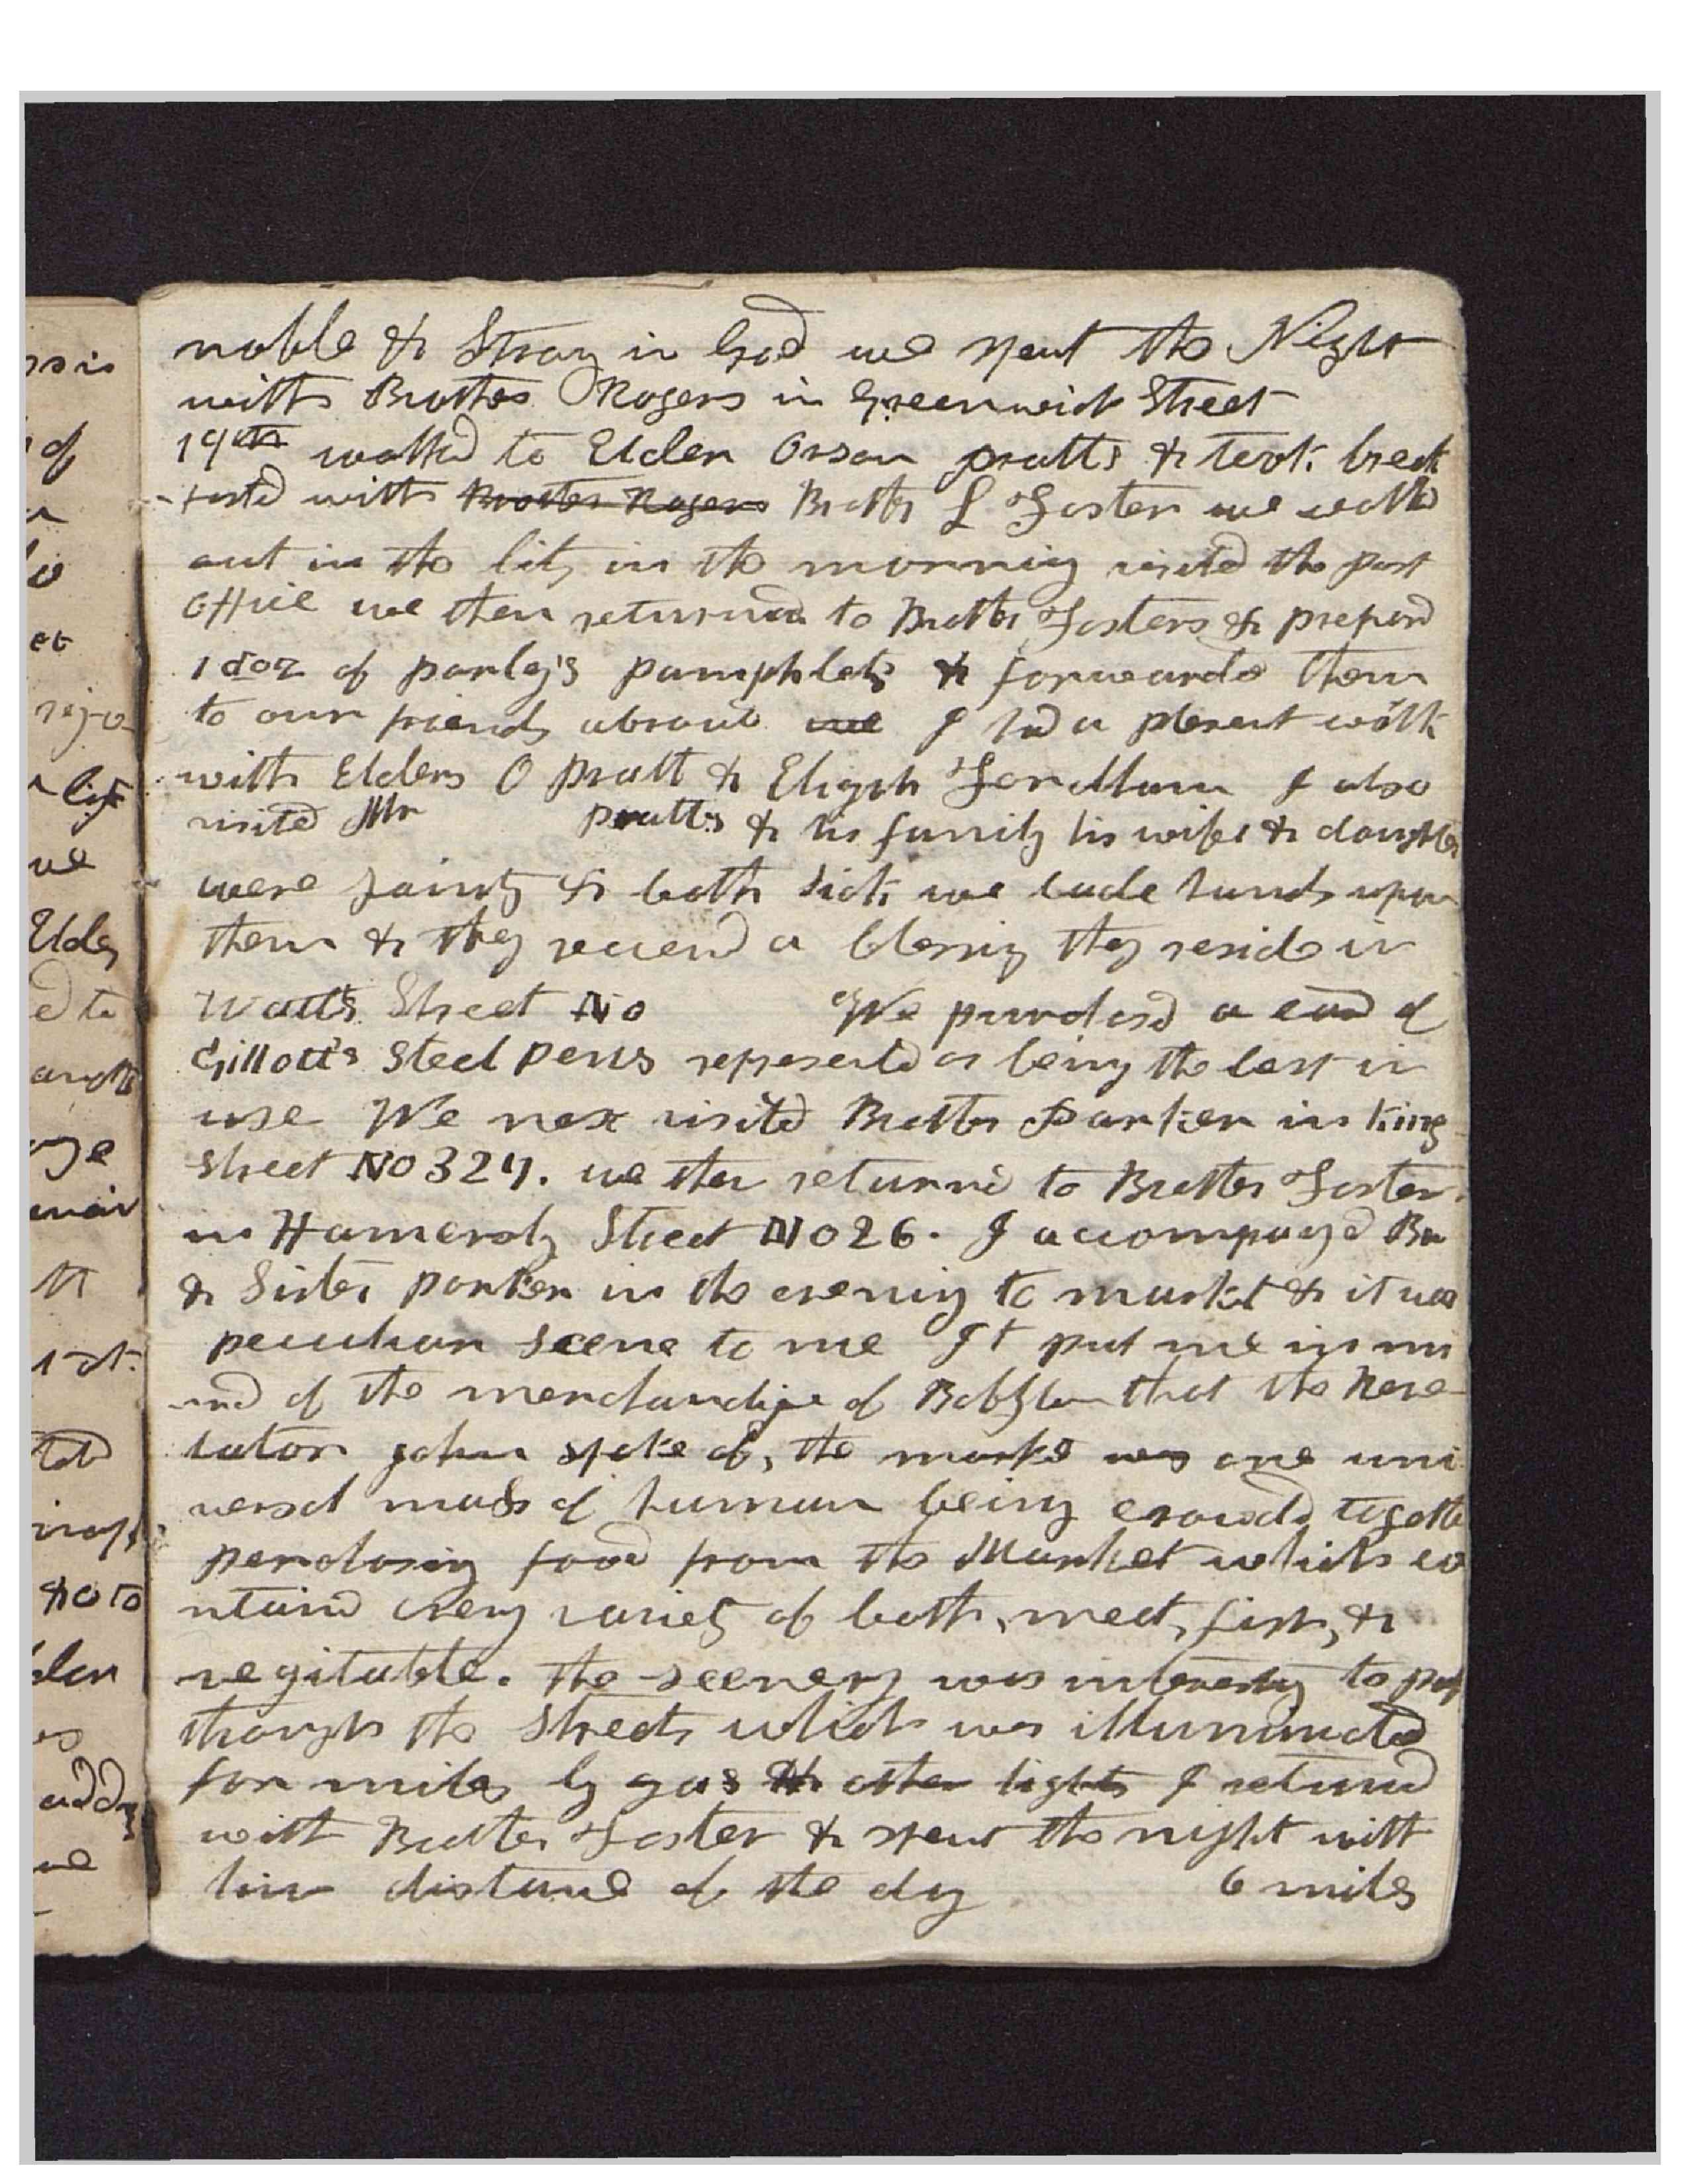 noble & Strong in God we spent the Night
with Brother Rogers in Greenwich Street
19th walked to Elder Orson pratts & took break
-fasted with Brother Rogers Brother L Foster we walked
out in the City in the morning visited the post
office we then returned to Brother Fosters & prepared
1 doz of parley's pamphlets & forwarded them
to our friends abroad we I had a plesent walk
with Elders O pratt & Elijah Fordham I also
visited Mr pratts & his family his wife & daughter
were saints & both sick we lade hands upon
them & they received a blessing they reside in
Watts Street No We purchased a card of
Gillott's Steel pens represented as being the best in
use We next visited Brother Parker in King
street No 327. we then returned to Brother Foster
in Hamersly Street No 26. I accompanyed Br
& Sister parker in the evening to market & it was
peculiar scene to me It put me in mi
-nd of the merchandize of Babylon that the Reve
lator john spoke of, the market was one uni
versal mass of human being crowded together
perchasing food from the Market which co
ntaind every variety of both, meet, fish, &
vegitable. the scenery was interesting to pass
through the Streets which was illuminated
for miles by gas & other lights I returned
with Brother Foster & spent the night with
him distance of the day 6 miles